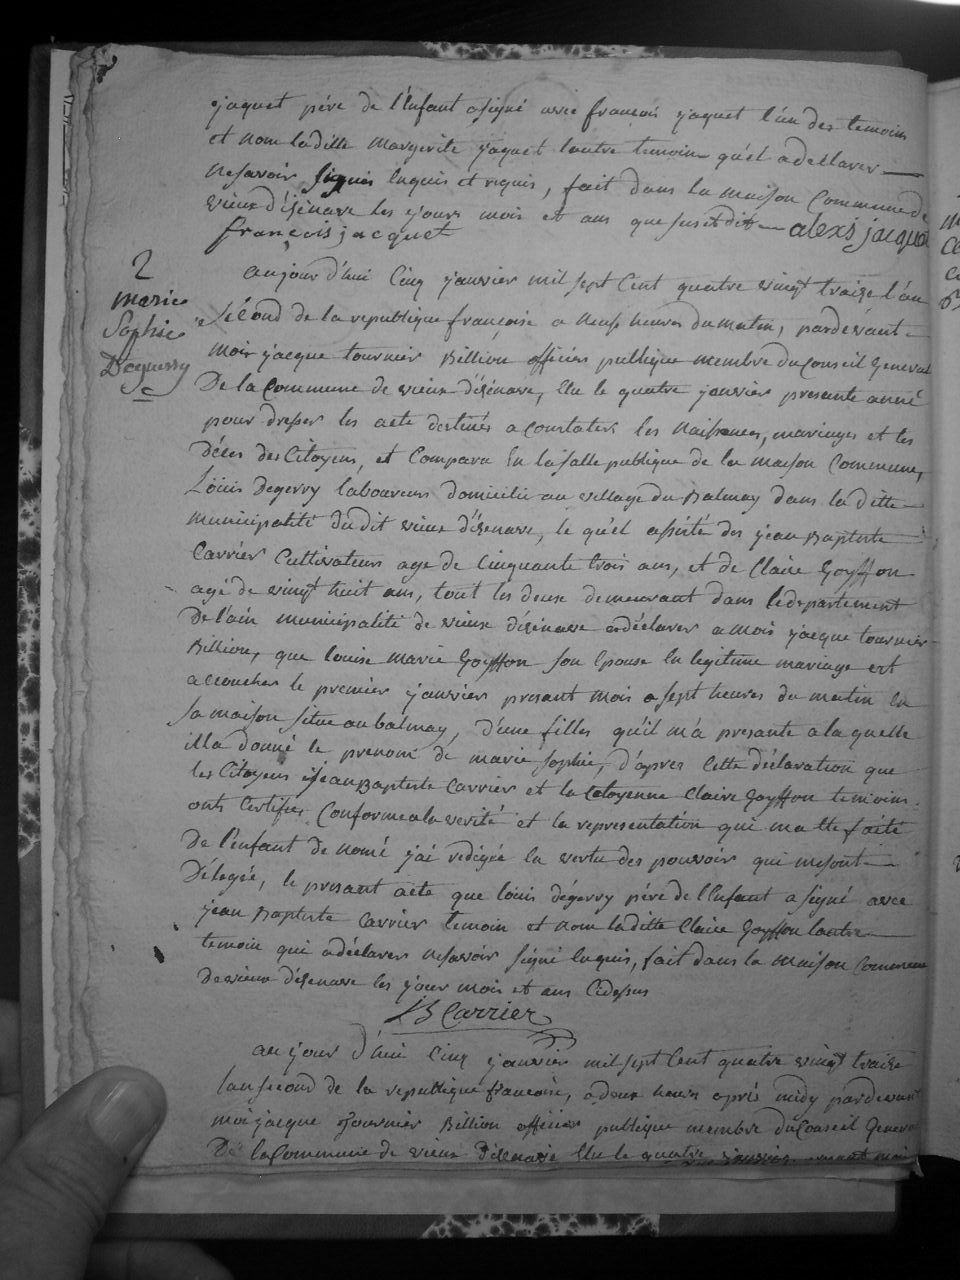 jaquet pére de l'Enfant a signé avec françois jaquet l'un des temoins
et nom ladille margerite jaquet lautre temoin qu'el a dellarer
ne savoir signer enquis et riquis, fait dans la maison Commune de
vieux d'izenave les jours mois et ans que susdit alexis jacquet
françois jacquet
2
marie
Sophie
Deguerry
aujour d'hui Cinq janvier mil sept Cent quatre vingt traize l'an
sécond de la republique françoise a neuf heures du matin, pardevant
moi jacque tournier Billion officier publique membre du Conseil General
De la Commune de vieux d'izenave, Elu le quatre janvier presante anné
pour dresser les acte destinés a Constater les Naissances, mariages et les
Décés des Citoyens, et Comparu En la salle publique de la maison Commune,
Loüis Degerry laboureur domicilié au village du Balmay dans la ditte
municipalité dudit vieux d'izenave, le qu'el assisté des jean Baptiste
Carrier Cultivateur age de Cinquante trois ans, et de Claire Goyffon
agé de vingt huit ans, tout les deux demeurant dans le departement
De l'ain municipalité de vieux d'izenave a déclarer a moi jacque tournier
Billion, que louise marie Goyffon son Epouse En legitime mariage est
accoucher le premier janvier presant mois a sept heures du matin En
sa maison situe au balmay, d'une filles qu'il m'a presante a la quelle
illa donné le prenom de marie sophie, d'apres Cette déclaration que
les Citoyens jean Baptiste Carrier et la Citoyenne Claire Goyffon temoins
ont Certifier Conforme a la verité et la representation qui ma tté faite
De l'enfant de nomé jai redigée la vertu des pouvoir qui me sont
Délegée, le presant acte que loüis dégerry pére de l'Enfant a signé avec
jean Baptiste Carrier temoin et nom laditte Claire Goyffon lautre
temoin qui a déclarer ne savoir signé Enquis, fait dans la maison Commune
de vieux dizenave les jour mois et ans Cidessus
J B Carrier
au jour d'hui Cinq janvier mil sept Cent quatre vingt traize
lan second de la republique francoise, a deux heures apris midy pardevant
moi jacque tournier Billion officier publique membre du Conseil General
De la Commune de vieux dizenave Elu le quatre janvier